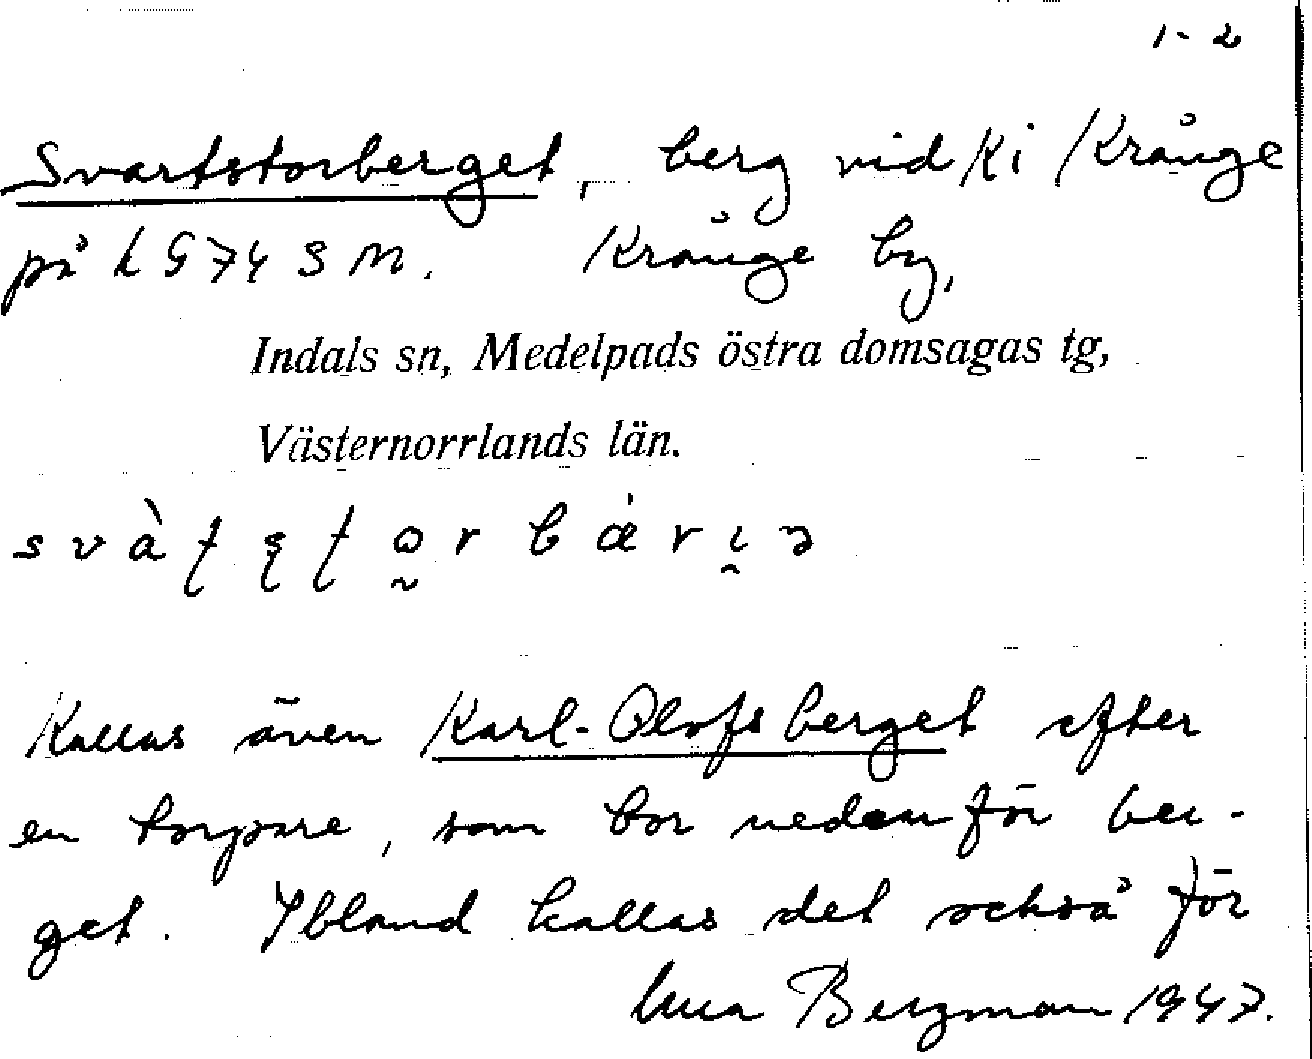 1-2
Svartstorberget, berg vid Ki /Krånge
på LG74 S M. Krånge by,
Indals sn, Medelpads östra domsagas tg,
Västernorrlands län.
Kallas även Karl-Olofsberget efter
en torpare, som bor nedanför ber-
get. Ibland kallas det också för
Bergman 1947.